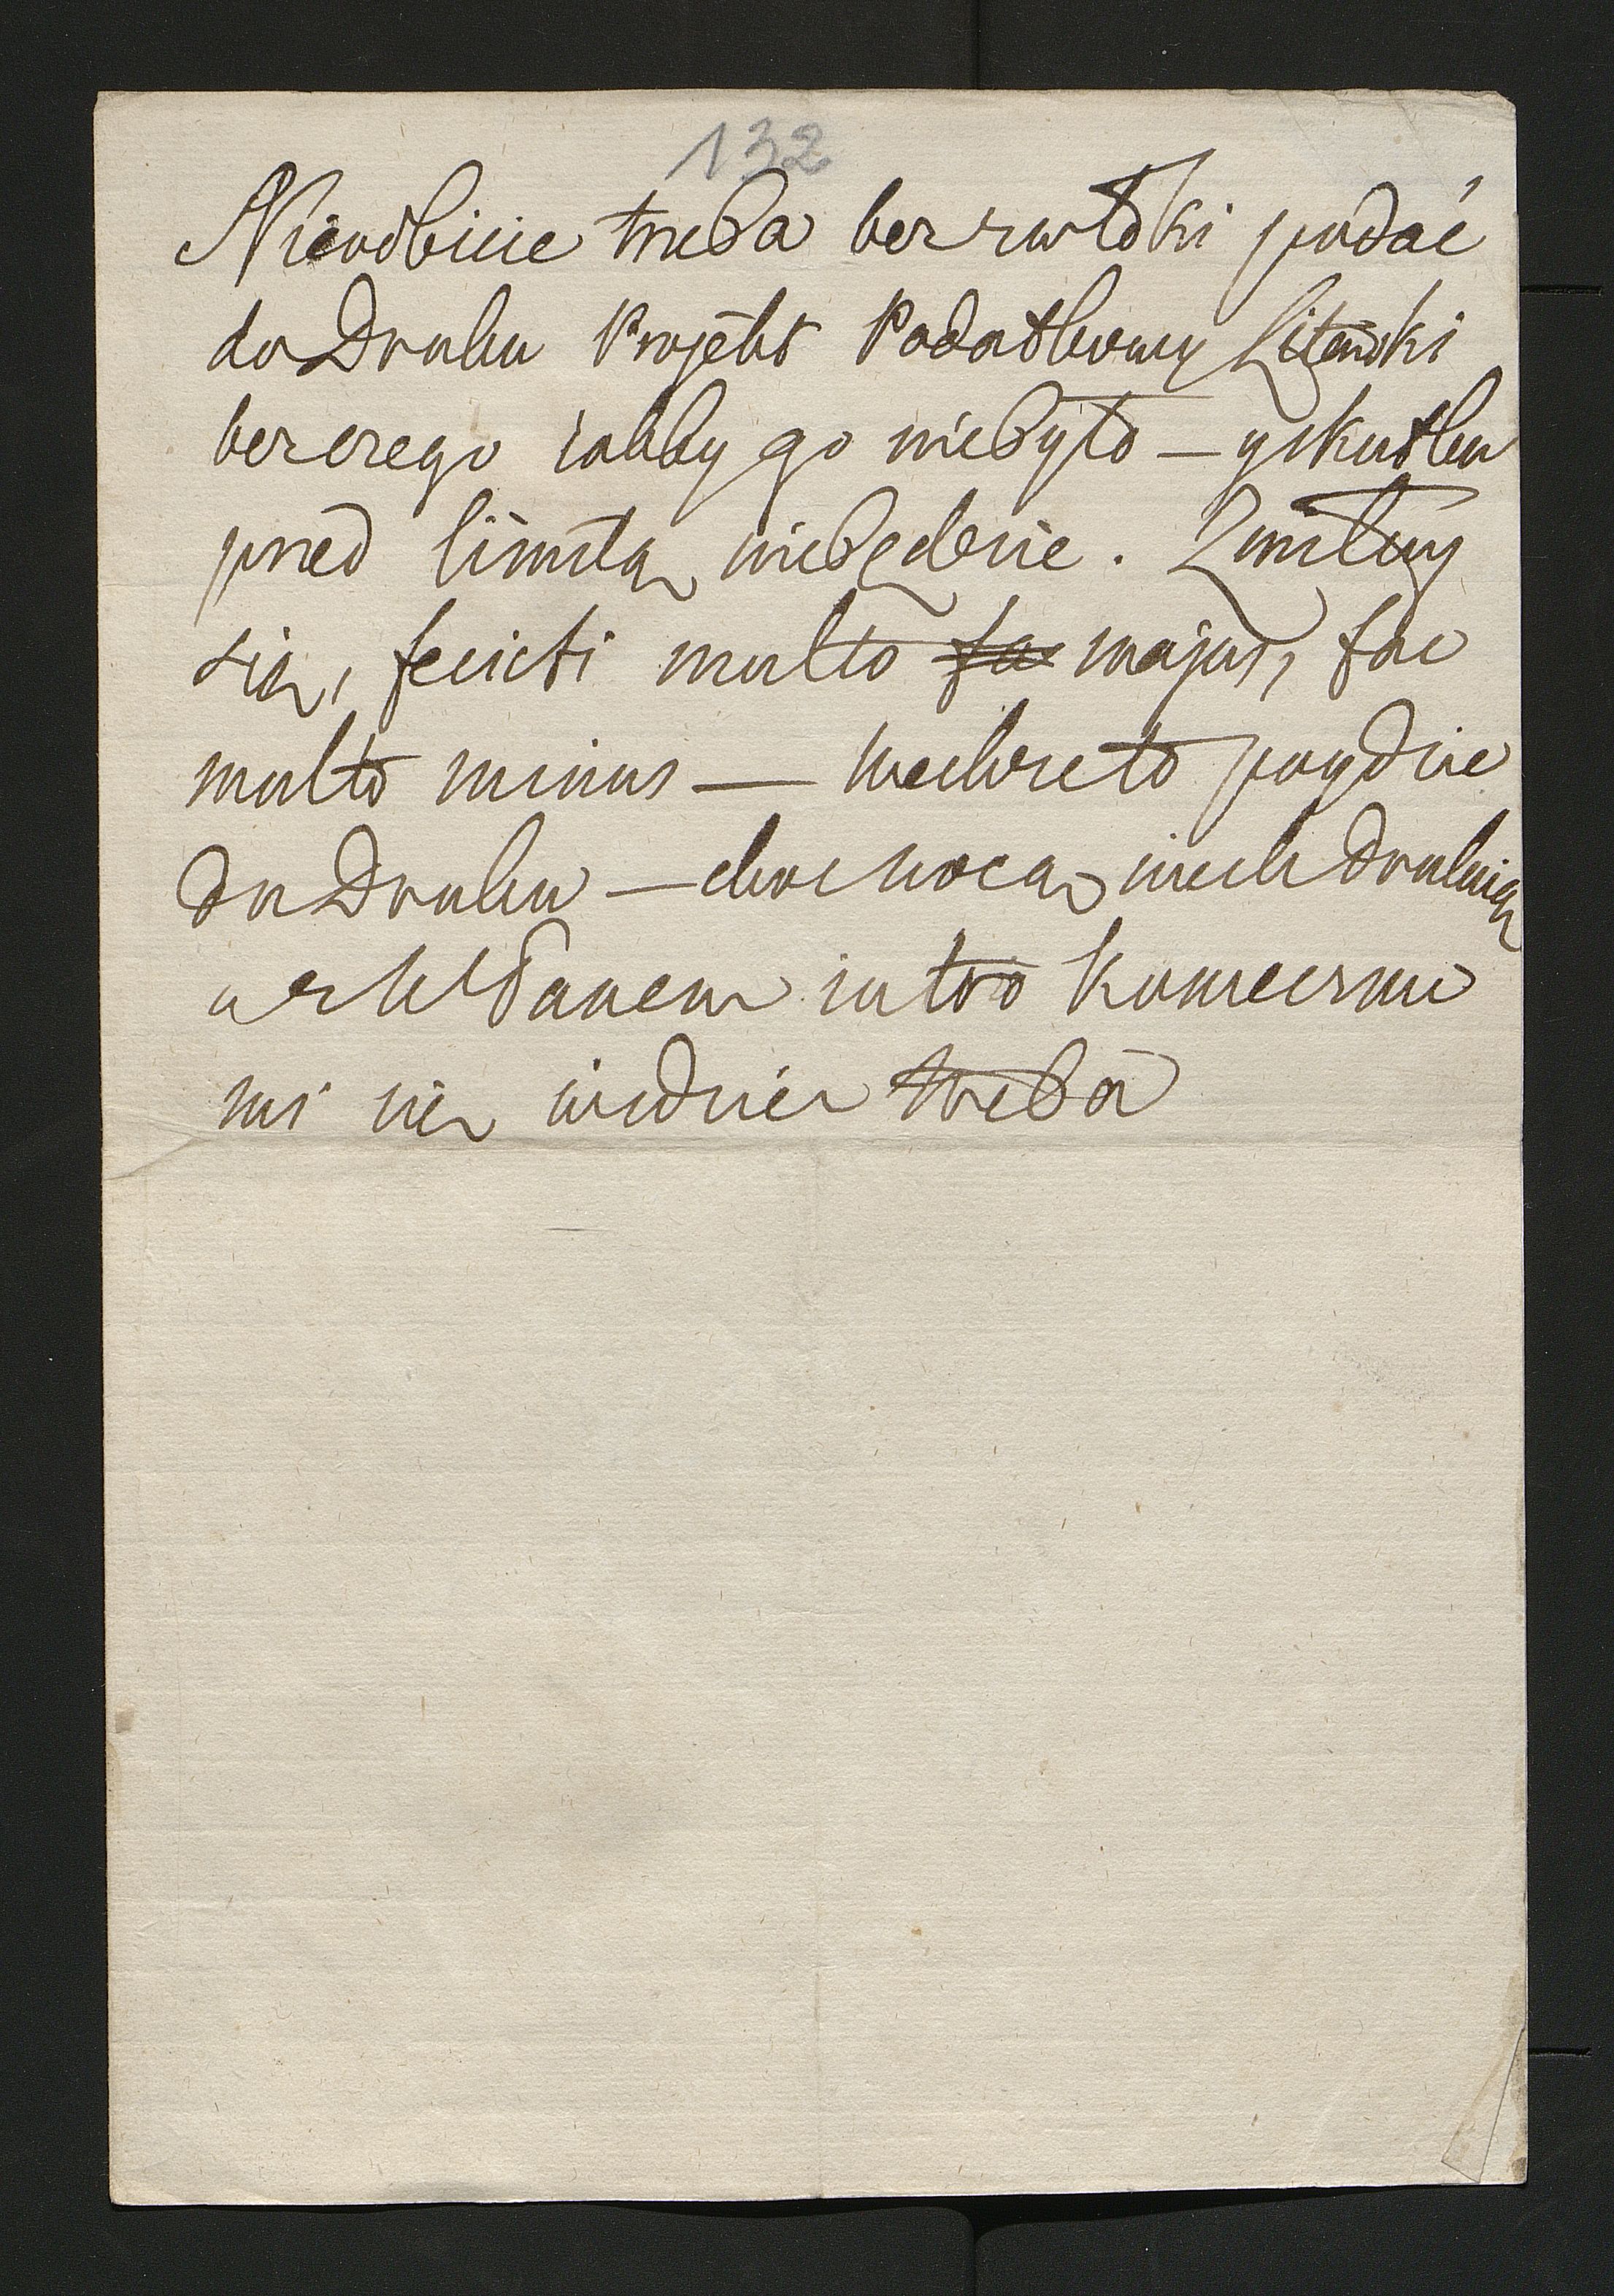 132
Nieodbicie trzeba bez zwłoki podać
do Druku Projekt Podatkowy Litewski
bez czego iakby go niebyło – y skutku
przed limitą niebędzie. Zmiłuy
się, fecisti multo fa majus, fac
multo minus — niechze to poydzie
do Druku – choc nocą niech drukuią
a z H Wdanem iutro koniecznie
mi się widziec trzeba